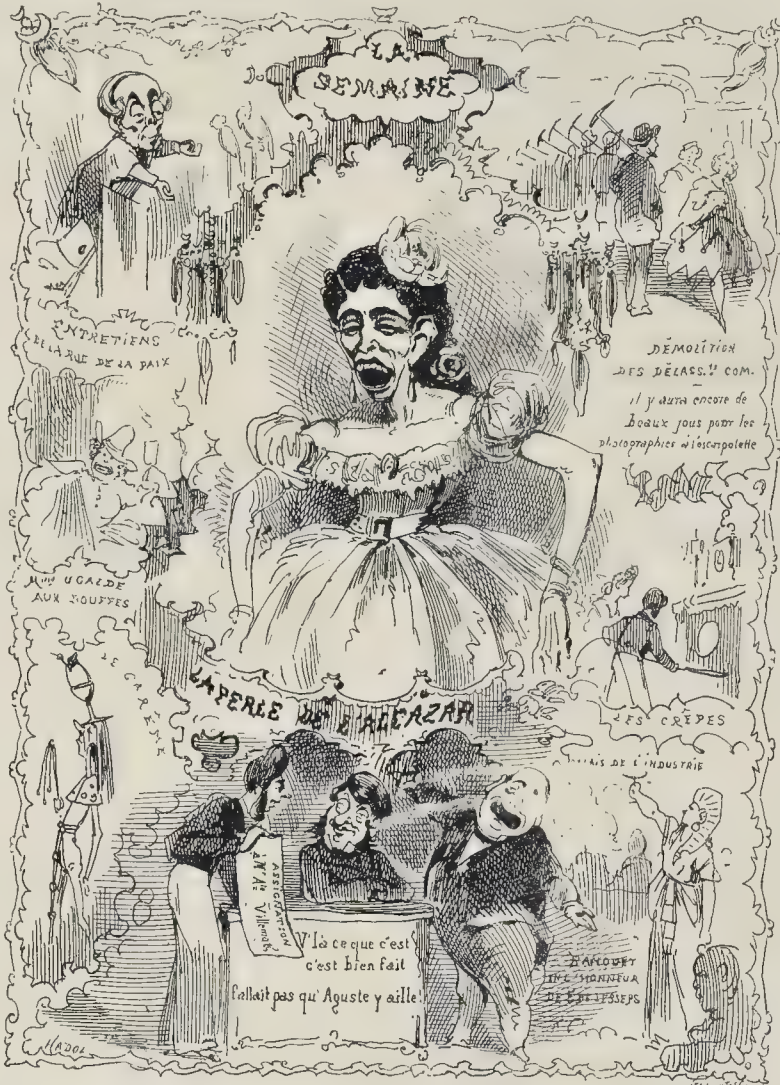 LA
SEMAINE
ENTRETIENS
DE LA RUE DE LA PAIX
DÉMOLITION
DES DÉLASS.ts COM.
il y aura encore de
beaux jous pour les
photographies à l'escarpolette
Mme UGALDE
AUX BOUFFES
LE CARÊME
LA PERLE DE L'ALCAZAR
LES CRÊPES
PALAIS DE L'INDUSTRIE
ASSIGNATION
à Mr Ate Villemot
V'là ce que c'est
c'est bien fait
fallait pas qu'Aguste y aille!
BANQUET
EN L'HONNEUR
DE LESSEPS
HADOL